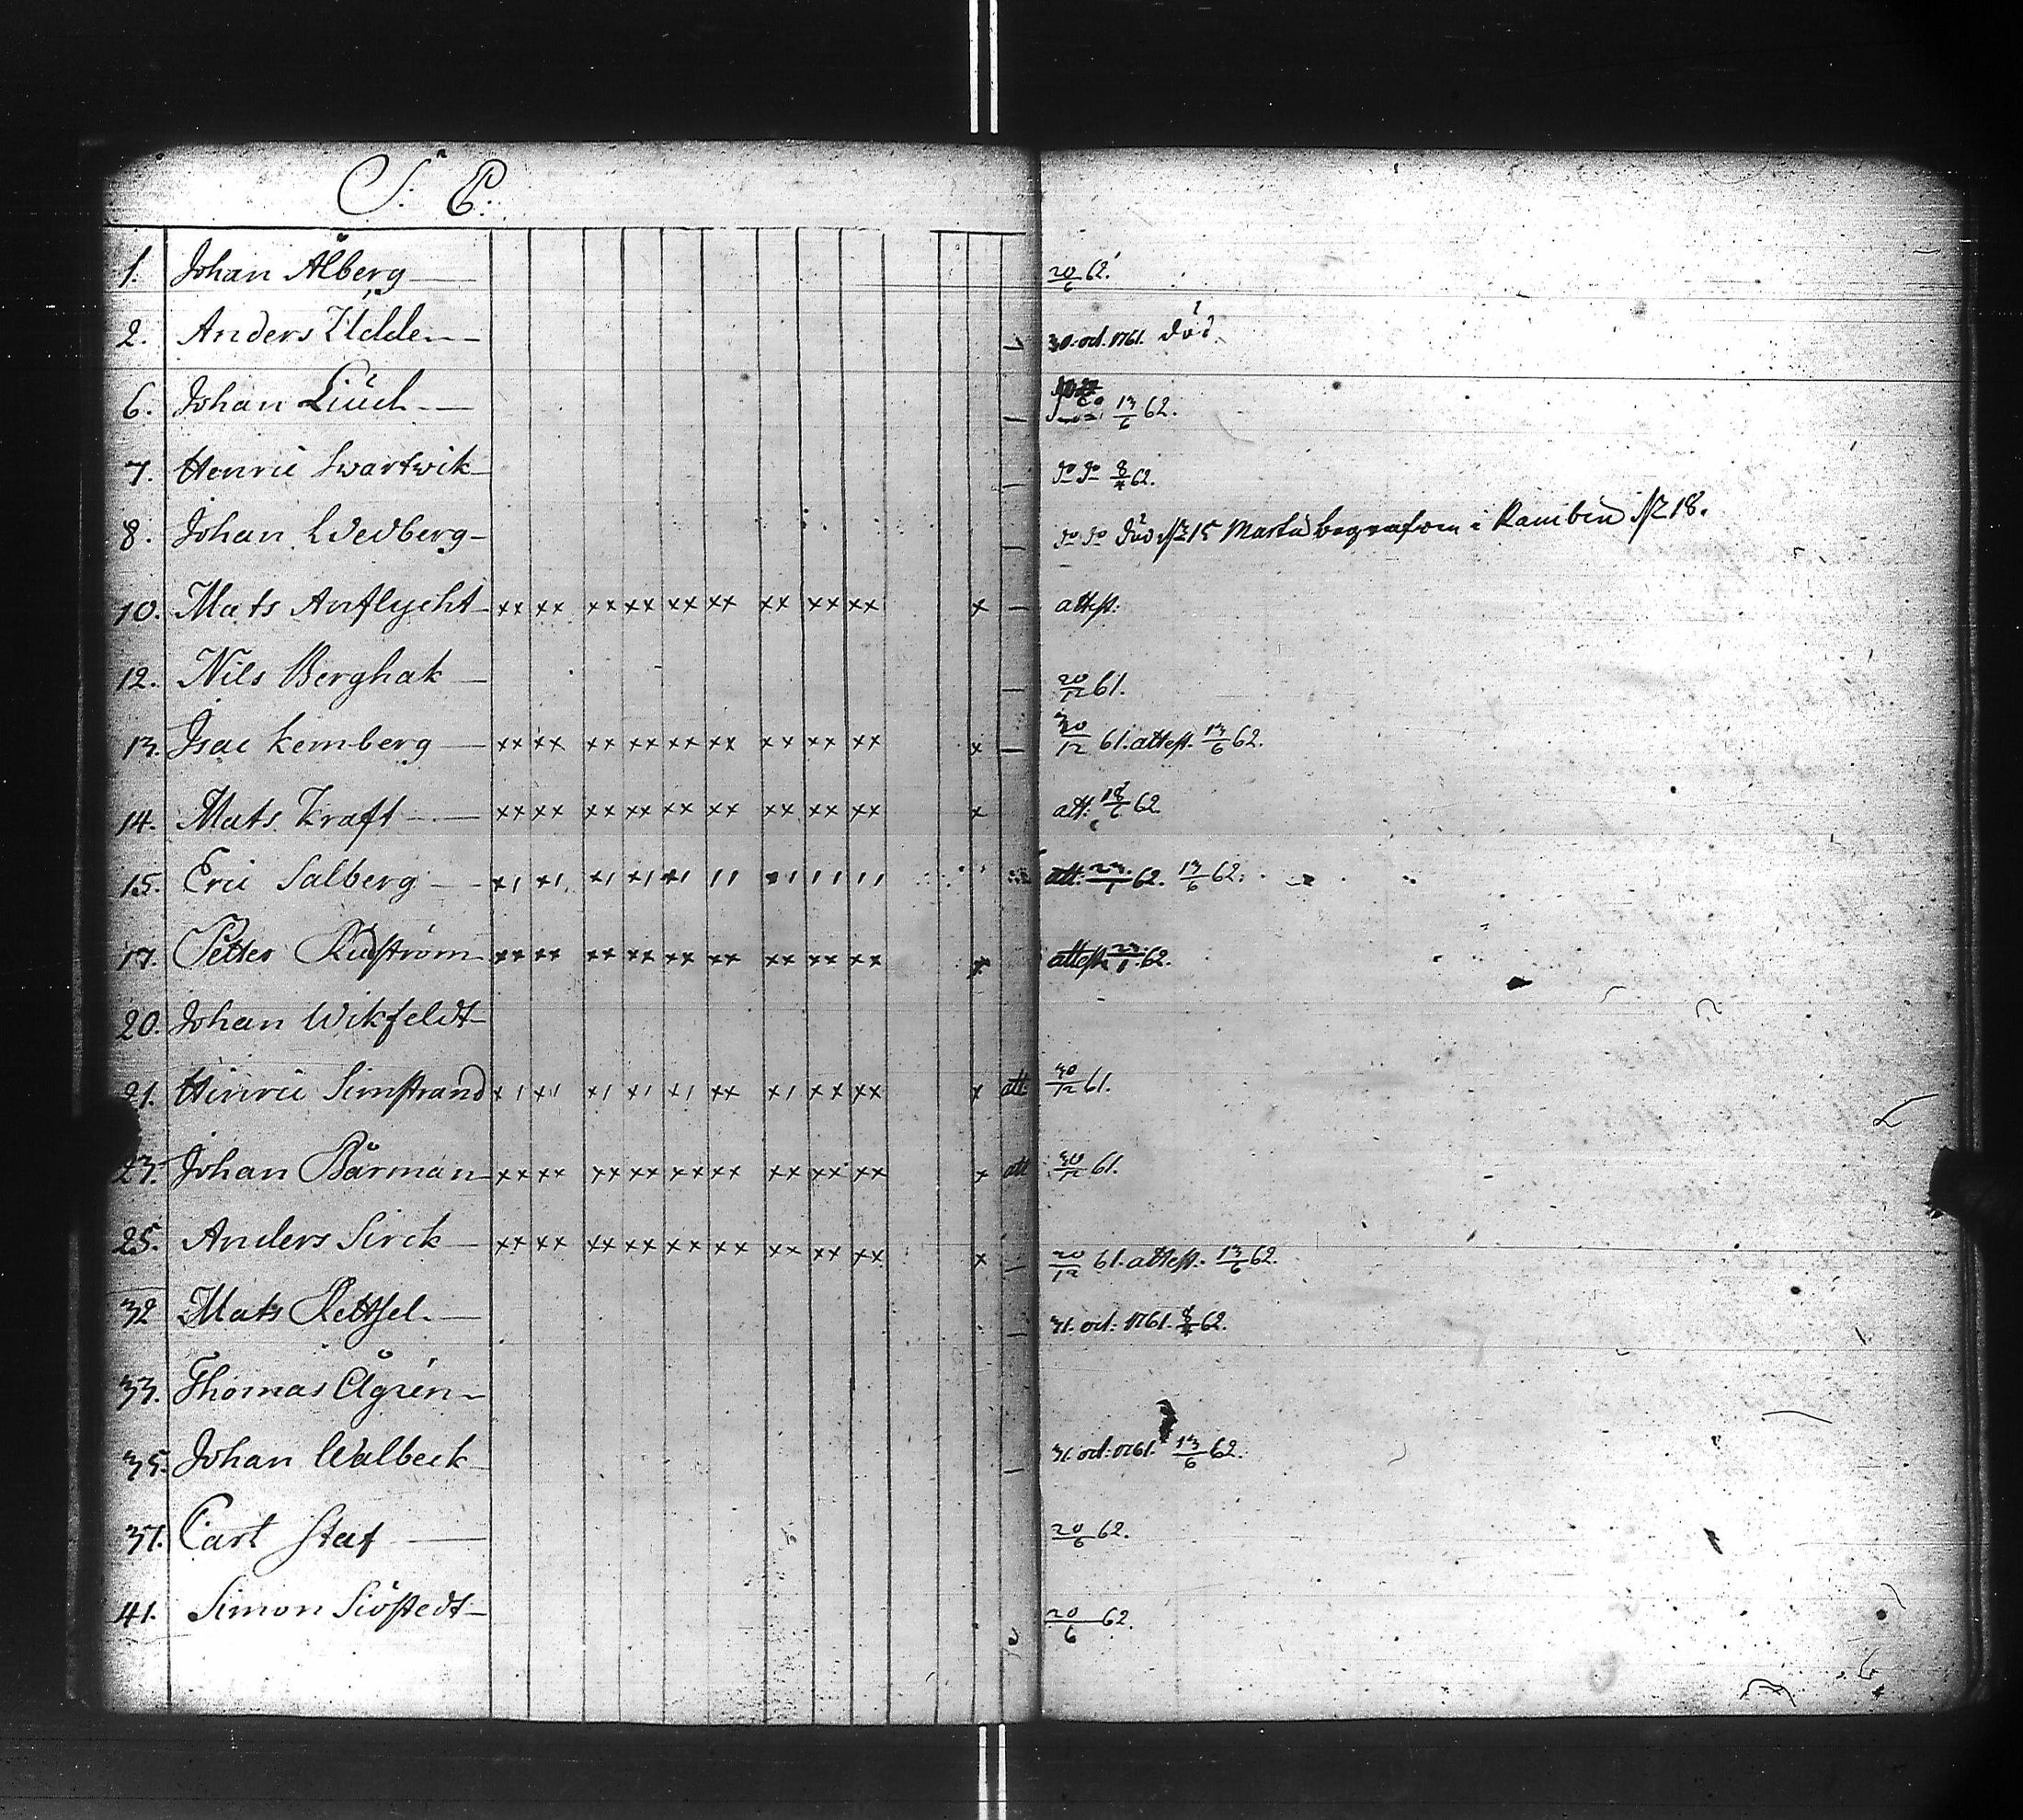 S. C.
1. Johan Ålberg 20/6 62.
2. Anders Udden 30. oct. 1761. död.
6. Johan Liud 13/6 62.
7. Henric Swartwik do do 8/4 62.
8. Johan Wedberg do do död d. 15 Martii begrafven i d. 18.
10. Mats Anflycht xx xx xx xx xx xx xx xx xx x attest:
12. Nils Berghak 20/12 61.
13. Isac Lemberg xx xx xx xx xx xx xx xx xx x 30/12 61. attest. 13/6 62.
14. Mats Kraft xx xx xx xx xx xx xx xx xx x att: 18/6 62
15. Eric Salberg x1 x1 x1 x1 x1 11 x1 11 11 att: 23/1 62. 13/6 62.
17. Petter Rudström xx xx xx xx xx xx xx xx xx x attest: 23/1 62.
20. Johan Wikfeldt
21. Hinric Simstrand x1 x1 x1 x1 x1 xx x1 xx xx x att 30/12 61.
23. Johan Bårman xx xx xx xx xx xx xx xx xx x att 30/12 61.
25. Anders Sirck xx xx xx xx xx xx xx xx xx x 20/12 61. attest. 13/6 62.
32 Mats Rettsel 31. oct: 1761. 8/4 62.
33. Thomas Ågrén
35. Johan Walbeck 31. oct: 1761. 13/6 62.
37. Carl Staf 20/6 62.
41. Simon Siöstedt 20/6 62.